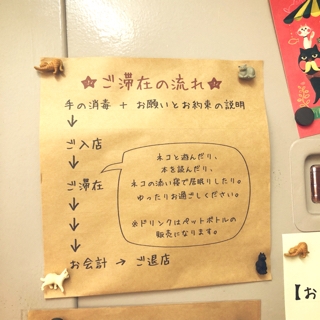 ★ご滞在の流れ★
手の消毒 + お願いとお約束の説明
↓
ご入店
↓
ご滞在
↓
↓
↓
お会計 → ご退店
ネコと遊んだり、
本を読んだり、
ネコの添い寝で居眠りしたり。
ゆったりお過ごしください。
※ドリンクはペットボトルの
販売になります。
【お